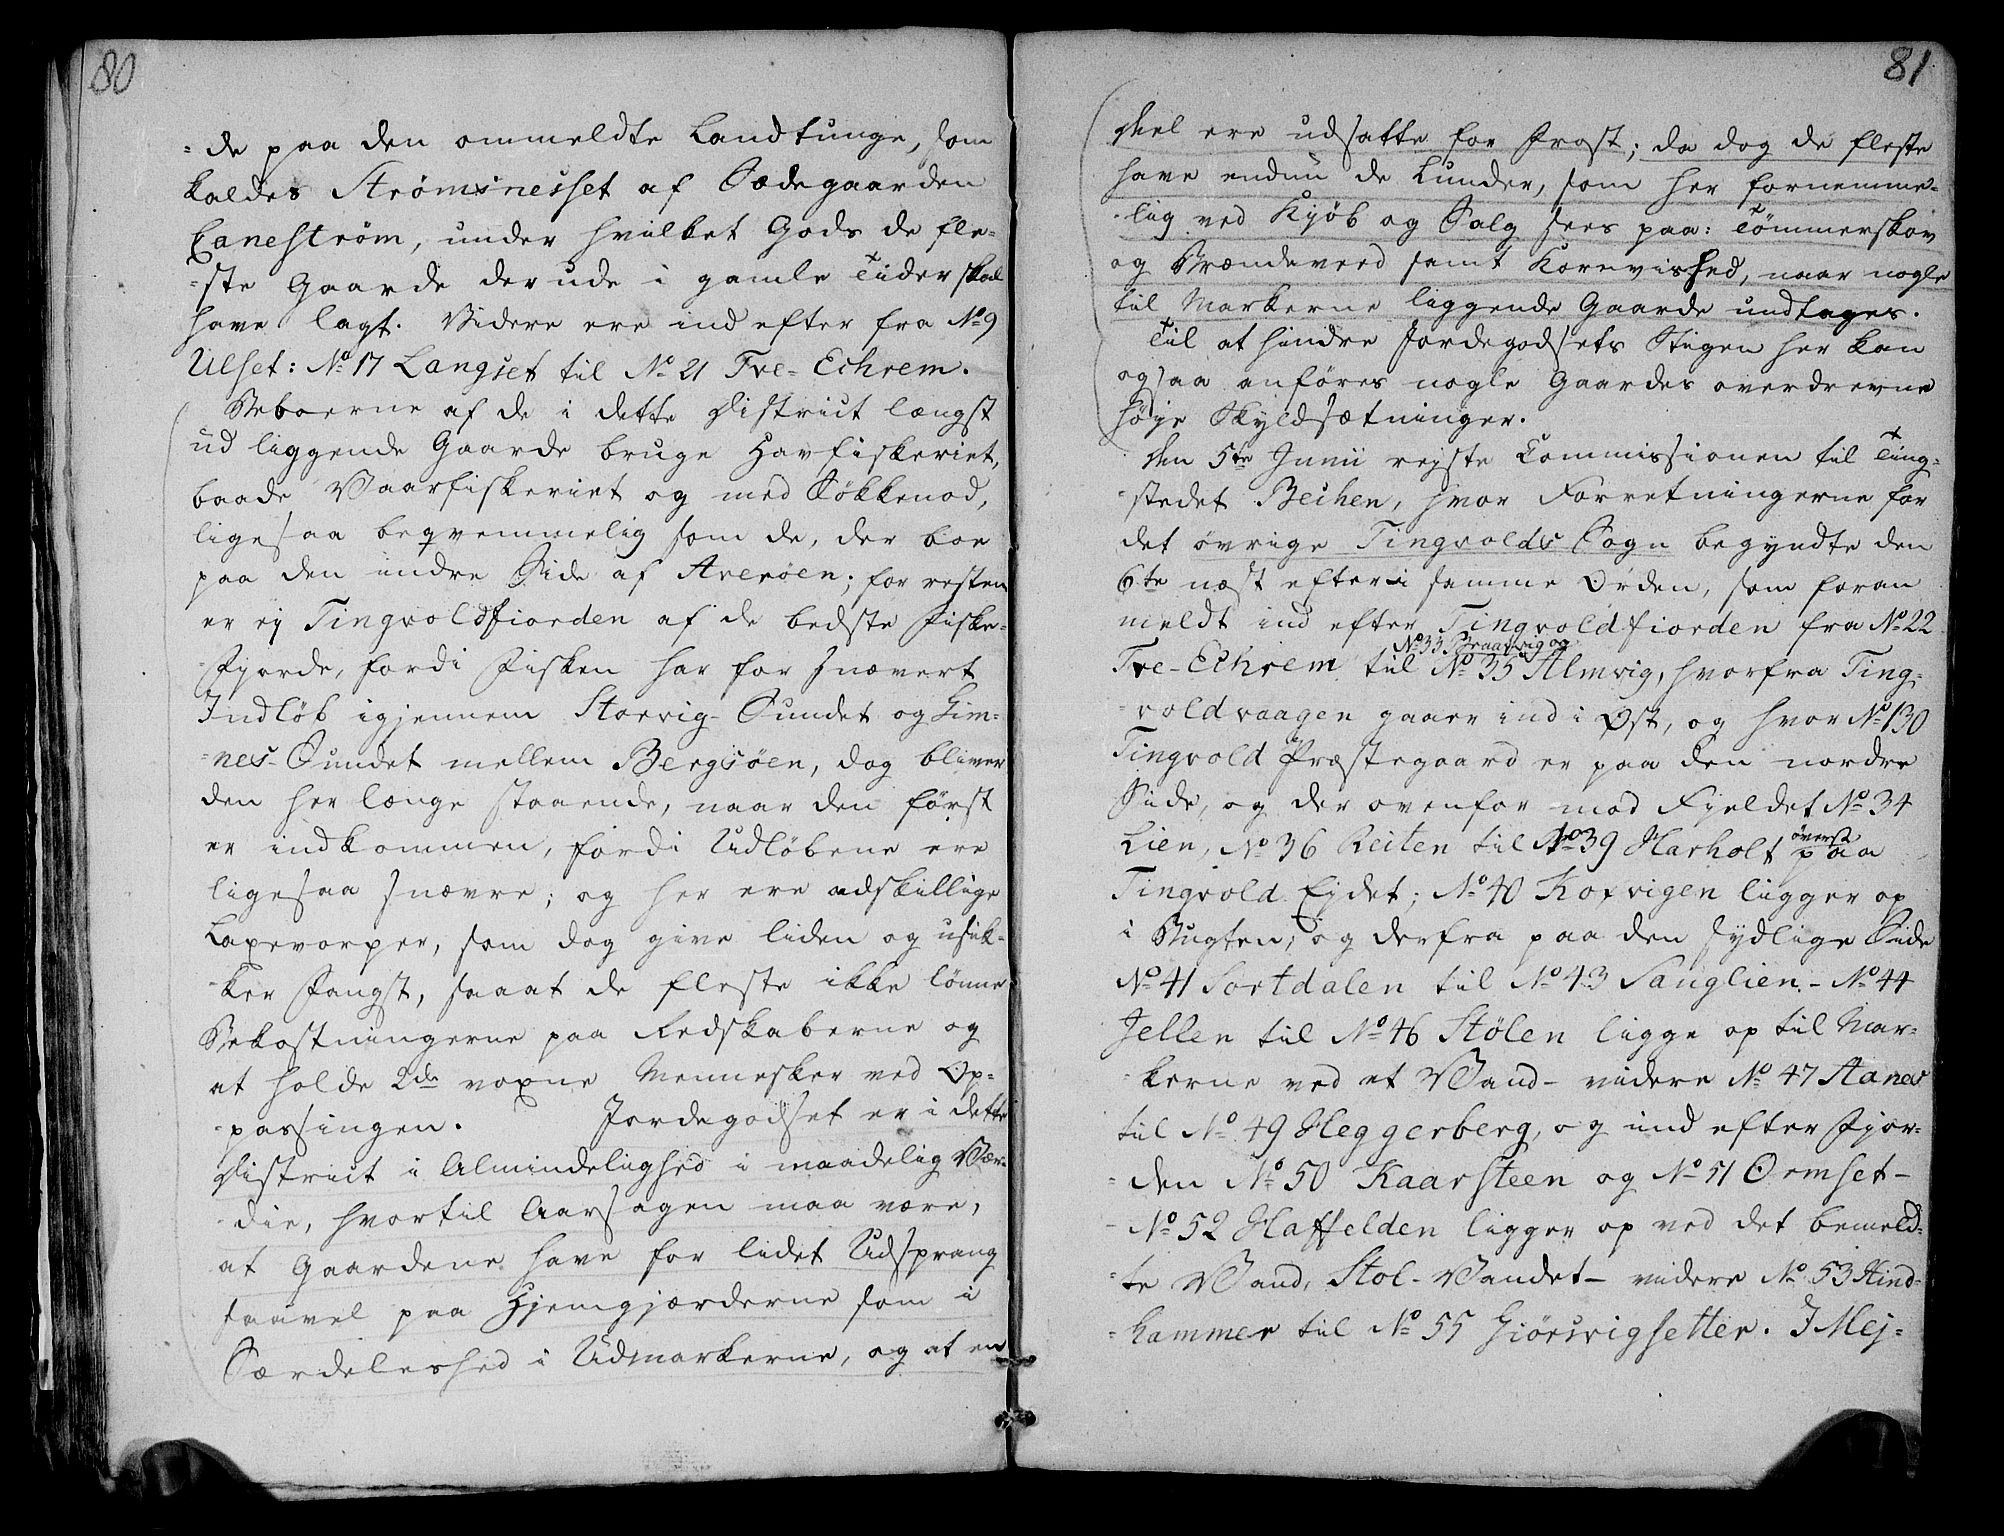 80
-de paa den ommeldte Landtunge, som
kaldes Strømsnesset af Sædegaarden
Canestrøm, under hvilket Gods de fle-
-ste Gaarde derude i gamle Tider skal
have lagt. Videre ere ind efter fra No 9
Ulset: No 17 Langset til No 21 Tre-Echrem.
Beboerne af de i dette District længst
ud liggende Gaarde bruge Havfiskeriet,
baade Vaarfiskeriet og med Søkkenod,
ligesaa beqvemmelig som de, der boe
paa den indre Side af Averöen; for resten
er ej Tingvoldfiorden af de bedste Fiske-
Fjorde, fordi Fisken har for snævert
Indløb igjennem Storvig-Sundet og Gim-
-nes-Sundet mellem Bergsöen, dog bliver
den her længe staaende, naar den først
er indkommen, fordi Udløbene ere
ligesaa snævre; og her ere adskillige
Laxevorper, som dog give liden og usik-
ker Fangst, saaat de fleste ikke lönne
Bekostningerne paa Redskaberne og
at holde 2de voxne Mennesker ved Op-
passingen. Jordegodset er i dette
District i Almindelighed i maadelig Vær-
die, hvortil Aarsagen maa være,
at Gaardene have for lidet Udsprang
saavel paa Hjemgjærderne som i
Særdeleshed i Udmarkerne, og at en
81
Deel ere udsatte for Frost; da dog de fleste
have endnu de Lunder, som her fornemme-
-lig ved Kjöb og Salg sees paa: Tömmerskov
og Brændeveed samt Kornvished, naar nogle
til Markerne liggende Gaarde undtages.
Til at hindre Jordegodsets Stigen her kan
ogsaa anföres nogle Gaardes overdrevne
höje Skyldsætninger.
Den 5te Junii rejste Commissionen til Ting-
-stedet Beihen, hvor Forretningerne for
det övrige Tingvolds Sogn begyndte den
6te næst efter i samme Orden, som foran
meldt ind efter Tingvoldfiorden fra No 22
No 33 Braarvig og
Tre-Echrem til No 35 Almvig, hvorfra Ting-
voldvaagen gaaer ind i Øst, og hvor No 130
Tingvold Præstegaard er paa den nordre
Side, og der ovenfor mod Fjeldet No 34
Lien, No 36 Reiten til No 39 Harholt överst paa
Tingvold Ejdet; No 40 Kofvigen ligger op
i Bugten; og derfra paa den sydlige Side
No 41 Sortdalen til No 43 Sanglien - No 44
Jellen til No 46 Stölen ligge op til Mar-
kerne ved et Vand - videre No 47 Aanes
til No 49 Heggerberg, og ind efter Fjor-
den No 50 Kaarsteen og No 51 Ormset -
No 52 Haffelden ligger op ved det bemeld-
te Vand, Stol-Vandet - videre No 53 Hind-
hammer til No 55 Giörsvigsetter. I Mej-